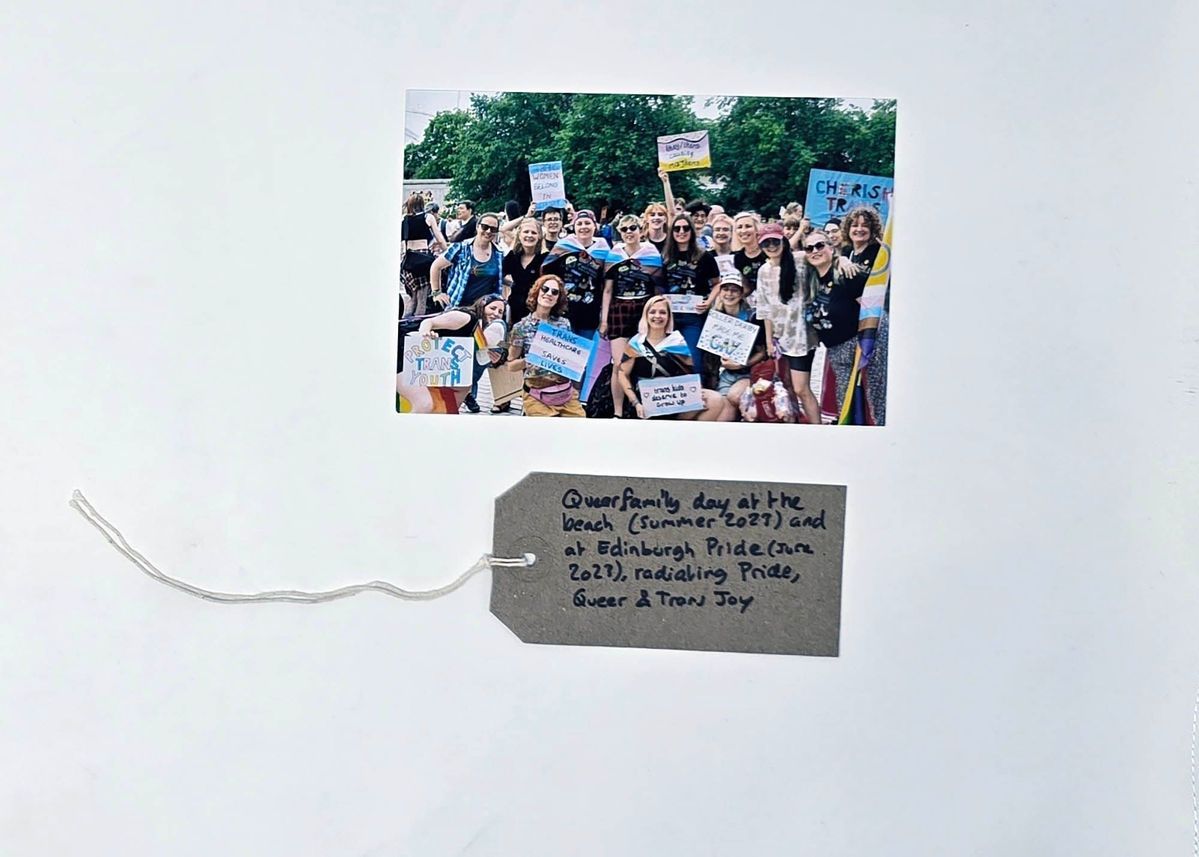 WOMEN
BELONG
IN
CAUSING
CHERISH
TRANS
PROTECT
TRANS
YOUTH
TRANS
HEALTHCARE
SAVES
LIVES
ROLLER DERBY
MADE ME
GAY
trans kids
deserve to
Grow up
Queer family day at the
beach (Summer 2023) and
at Edinburgh Pride (June
2023), radiating Pride,
Queer & Trans Joy